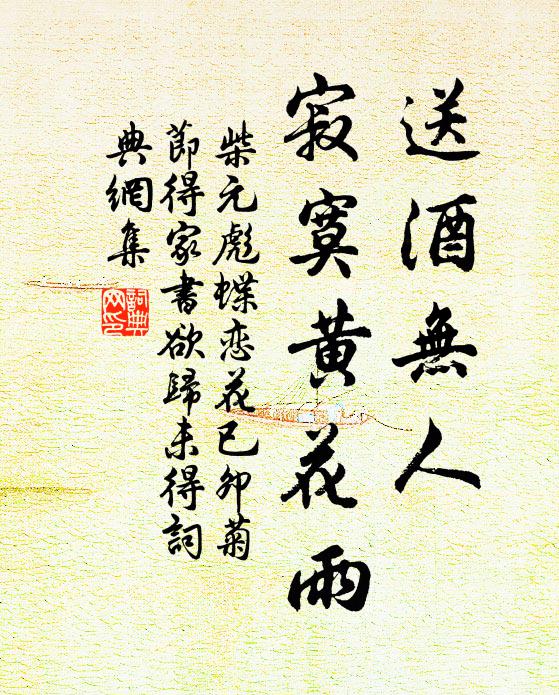 送酒無人
寂寞黄花雨
柴元彪蝶恋花己卯菊
節得家書欲歸未得詞
典網集
詞典
网印